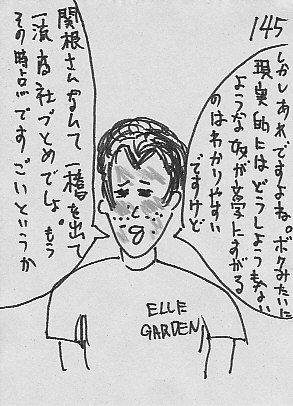 145
しかしあれですよね。ボクみたいに
現実的にはどうしようもない
ような奴が文学にすがる
のはわかりやすい
ですけど
関根さんなんて一橋を出て
一流商社づとめでしょ。もう
その時点ですごいというか
ELLE
GARDEN